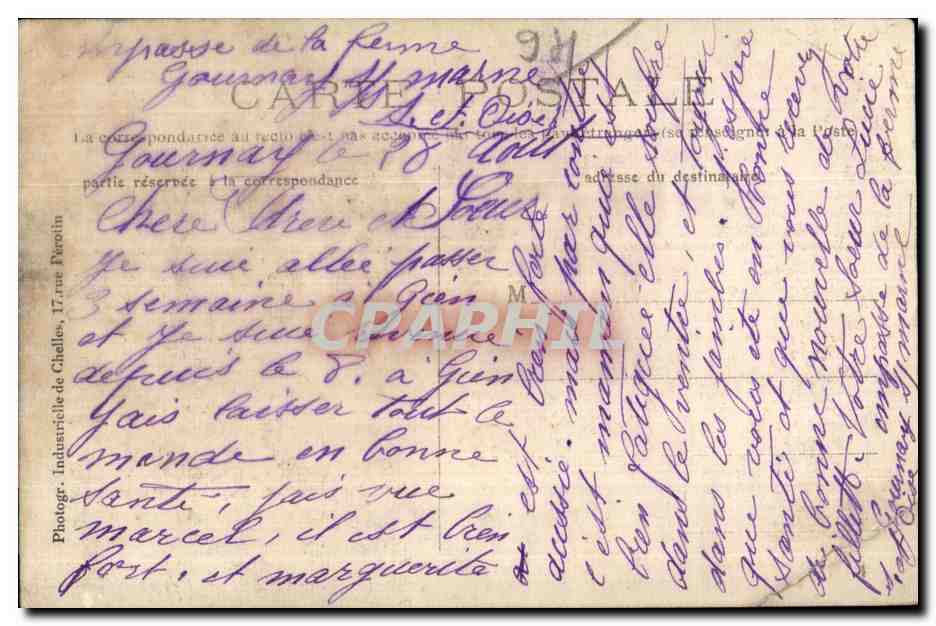 impasse de la ferme
Gournay s/ marne
S. et Oise
974
CARTE POSTALE
La correspondance au recto n'est pas acceptée par tous les pays étrangers (se renseigner à la Poste
partie réservée à la correspondance
adresse du destinataire
Photogr. Industrielle de Chelles, 17, rue Pérotin
M
CPAPHIL
Gournay le 28 Aout
Chere frere et Soeur
Je sui allée passer
3 semaine a Gien
et Je sui
depuis le 8. a Gien
Jais laisser tout le
monde en bonne
santé, jais vue
marcel, il est bien
fort. et marguerite
est bien forte
aussie. mais par contre
c'est maman qui est
bien fatiguée elle soufre
dans le ventre, et toujour
dans les jambes. J'espère
que vous ete en bonne
santé et que vous
de bonne nouvelle de votre
fillette. Votre soeur
impasse de la ferme
Gournay s/ marne
s. et Oise